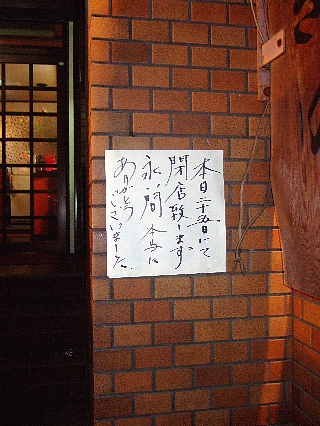 本日二十五日にて
閉店致します
永い間本当に
ありがとうございました。